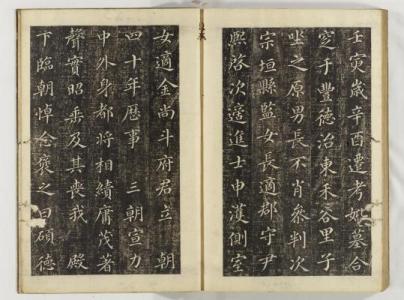 壬寅歲辛酉遷考妣墓合
窆于豐德治東禾谷里子
坐之原男長不肖參判次
宗垣縣監女長適郡守尹
熙啓次適進士申漢側室
女適金尚斗府君立 朝
四十年歷事 三朝宣力
中外身都將相績庸茂著
聲實昭乘及其喪我 殿
下臨朝悼念褒之曰碩德